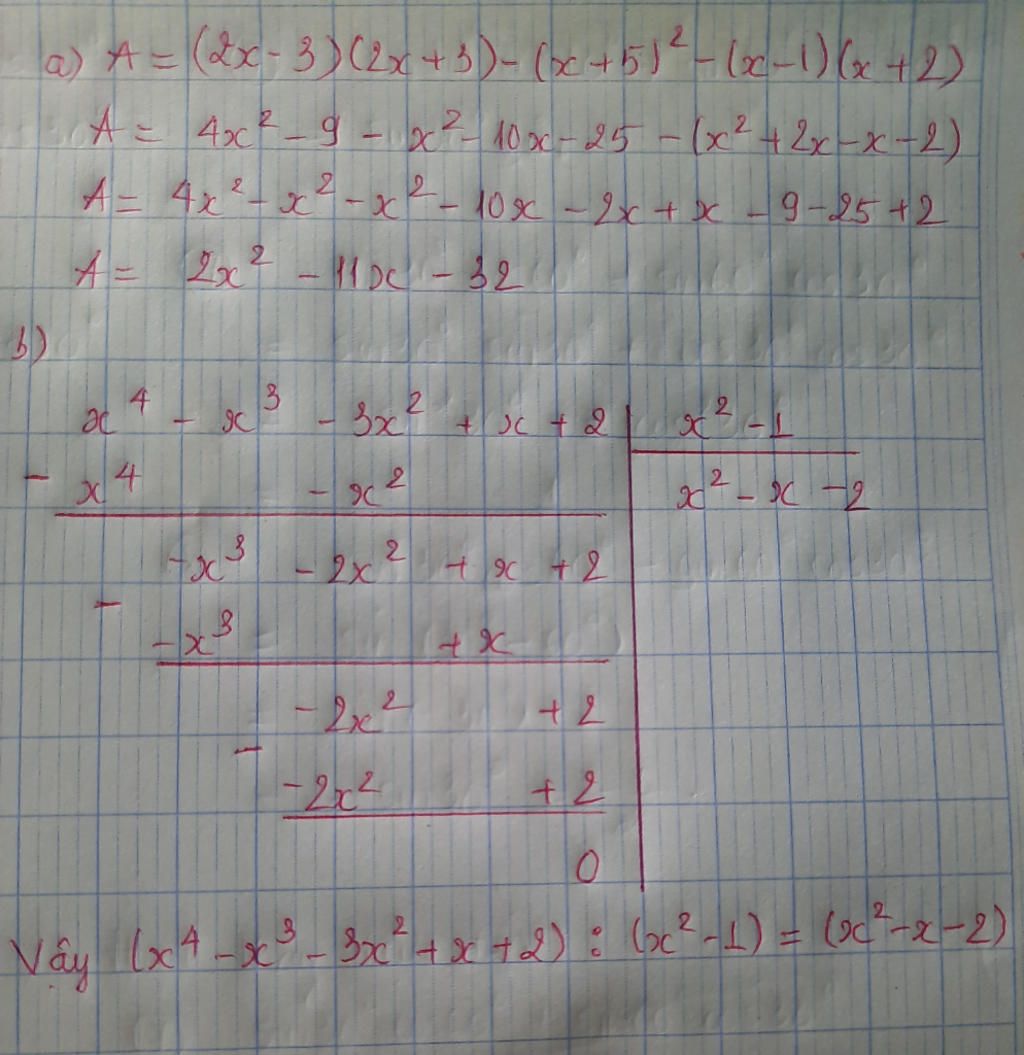 a) A = (2x - 3)(2x + 3) - (x + 5)² - (x - 1)(x + 2)
A = 4x² - 9 - x² - 10x - 25 - (x² + 2x - x - 2)
A = 4x² - x² - x² - 10x - 2x + x - 9 - 25 + 2
A = 2x² - 11x - 32
b)
x⁴ - x³ - 3x² + x + 2 | x² - 1
- x⁴ - x² | x² - x - 2
-x³ - 2x² + x + 2
- -x³ + x
-2x² + 2
- -2x² + 2
0
Vậy (x⁴ - x³ - 3x² + x + 2) : (x² - 1) = (x² - x - 2)